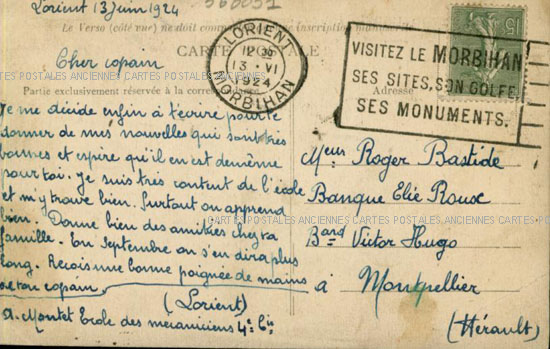 Lorient 13 juin 1924
Le Verso (côté vue) ne doit comporter
inscription
CARTE POSTALE
LORIENT
13 - VI
1924
MORBIHAN
15
VISITEZ LE MORBIHAN
SES SITES, SON GOLFE
SES MONUMENTS.
Partie exclusivement réservée à la correspondance
Adresse
CARTES POSTALES ANCIENNES CARTES POSTALES ANCIENNES CARTES POSTALES ANCIENNES CARTES POSTALES
Cher copain
Je me décide enfin à t'écrire pour te
donner de mes nouvelles qui sont très
bonnes et espère qu'il en est de même
pour toi. Je suis très content de l'école
et m'y trouve bien. Surtout on apprend
bien. Donne bien des amitiés chez ta
famille. En Septembre on s'en dira plus
long. Reçois une bonne poignée de mains
de ton copain,
(Lorient)
A. Montet Ecole des mécaniciens 4e Cie
Meur Roger Bastide
Banque Elie Roux
Bard Victor Hugo
à Montpellier
(Hérault)